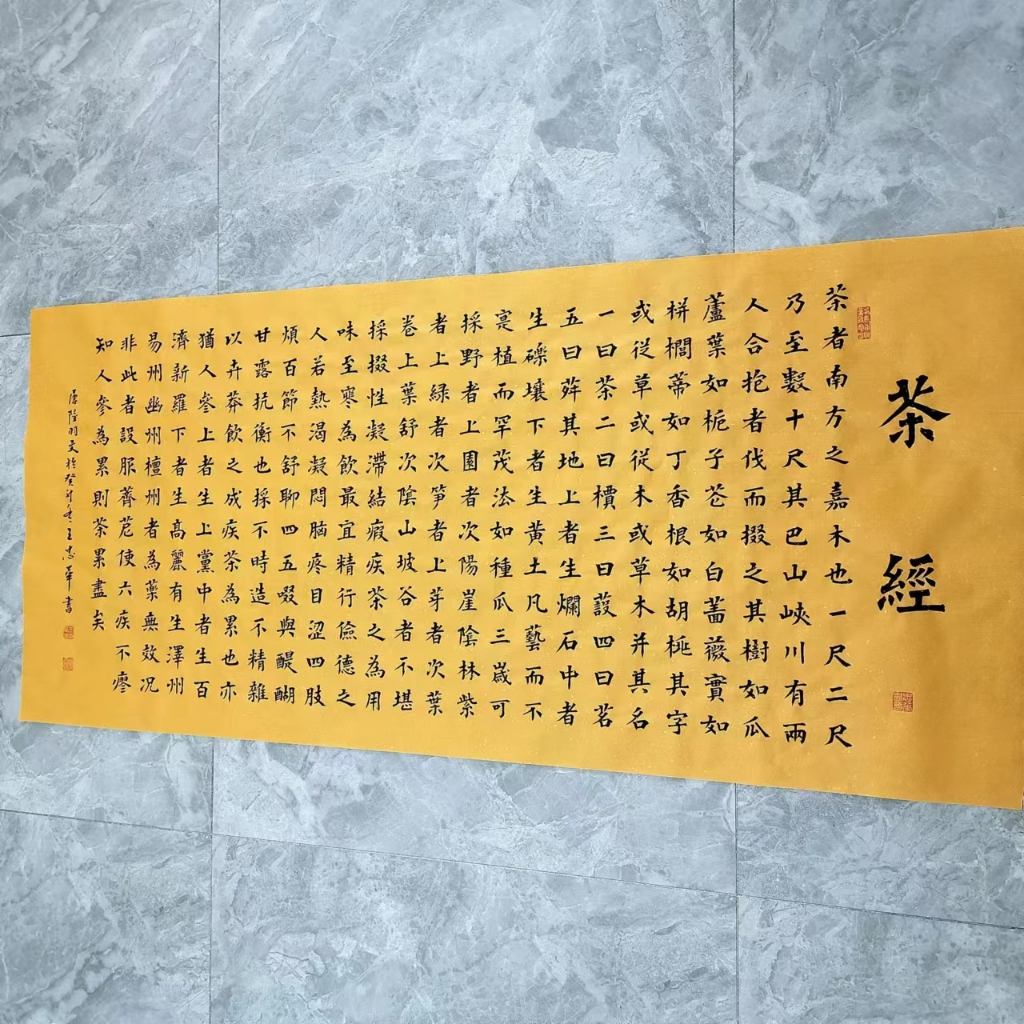 茶經
茶者南方之嘉木也一尺二尺
乃至數十尺其巴山峽川有兩
人合抱者伐而掇之其樹如瓜
蘆葉如栀子花如白薔薇實如
栟櫚蒂如丁香根如胡桃其字
或從草或從木或草木并其名
一曰茶二曰檟三曰蔎四曰茗
五曰荈其地上者生爛石中者
生礫壤下者生黄土凡藝而不
寔植而罕茂法如種瓜三歲可
採野者上園者次陽崖陰林紫
者上綠者次笋者上芽者次葉
卷上葉舒次陰山坡谷者不堪
採掇性凝滯結瘕疾茶之為用
味至寒為飲最宜精行儉德之
人若熱渴凝悶腦疼目澀四肢
煩百節不舒聊四五啜與醍醐
甘露抗衡也採不時造不精雜
以卉莽飲之成疾茶為累也亦
猶人參上者生上黨中者生百
濟新羅下者生高麗有生澤州
易州幽州檀州者為藥無效況
非此者設服薺苨使六疾不瘳
知人參為累則茶累盡矣
唐陸羽文於癸卯年王志軍書